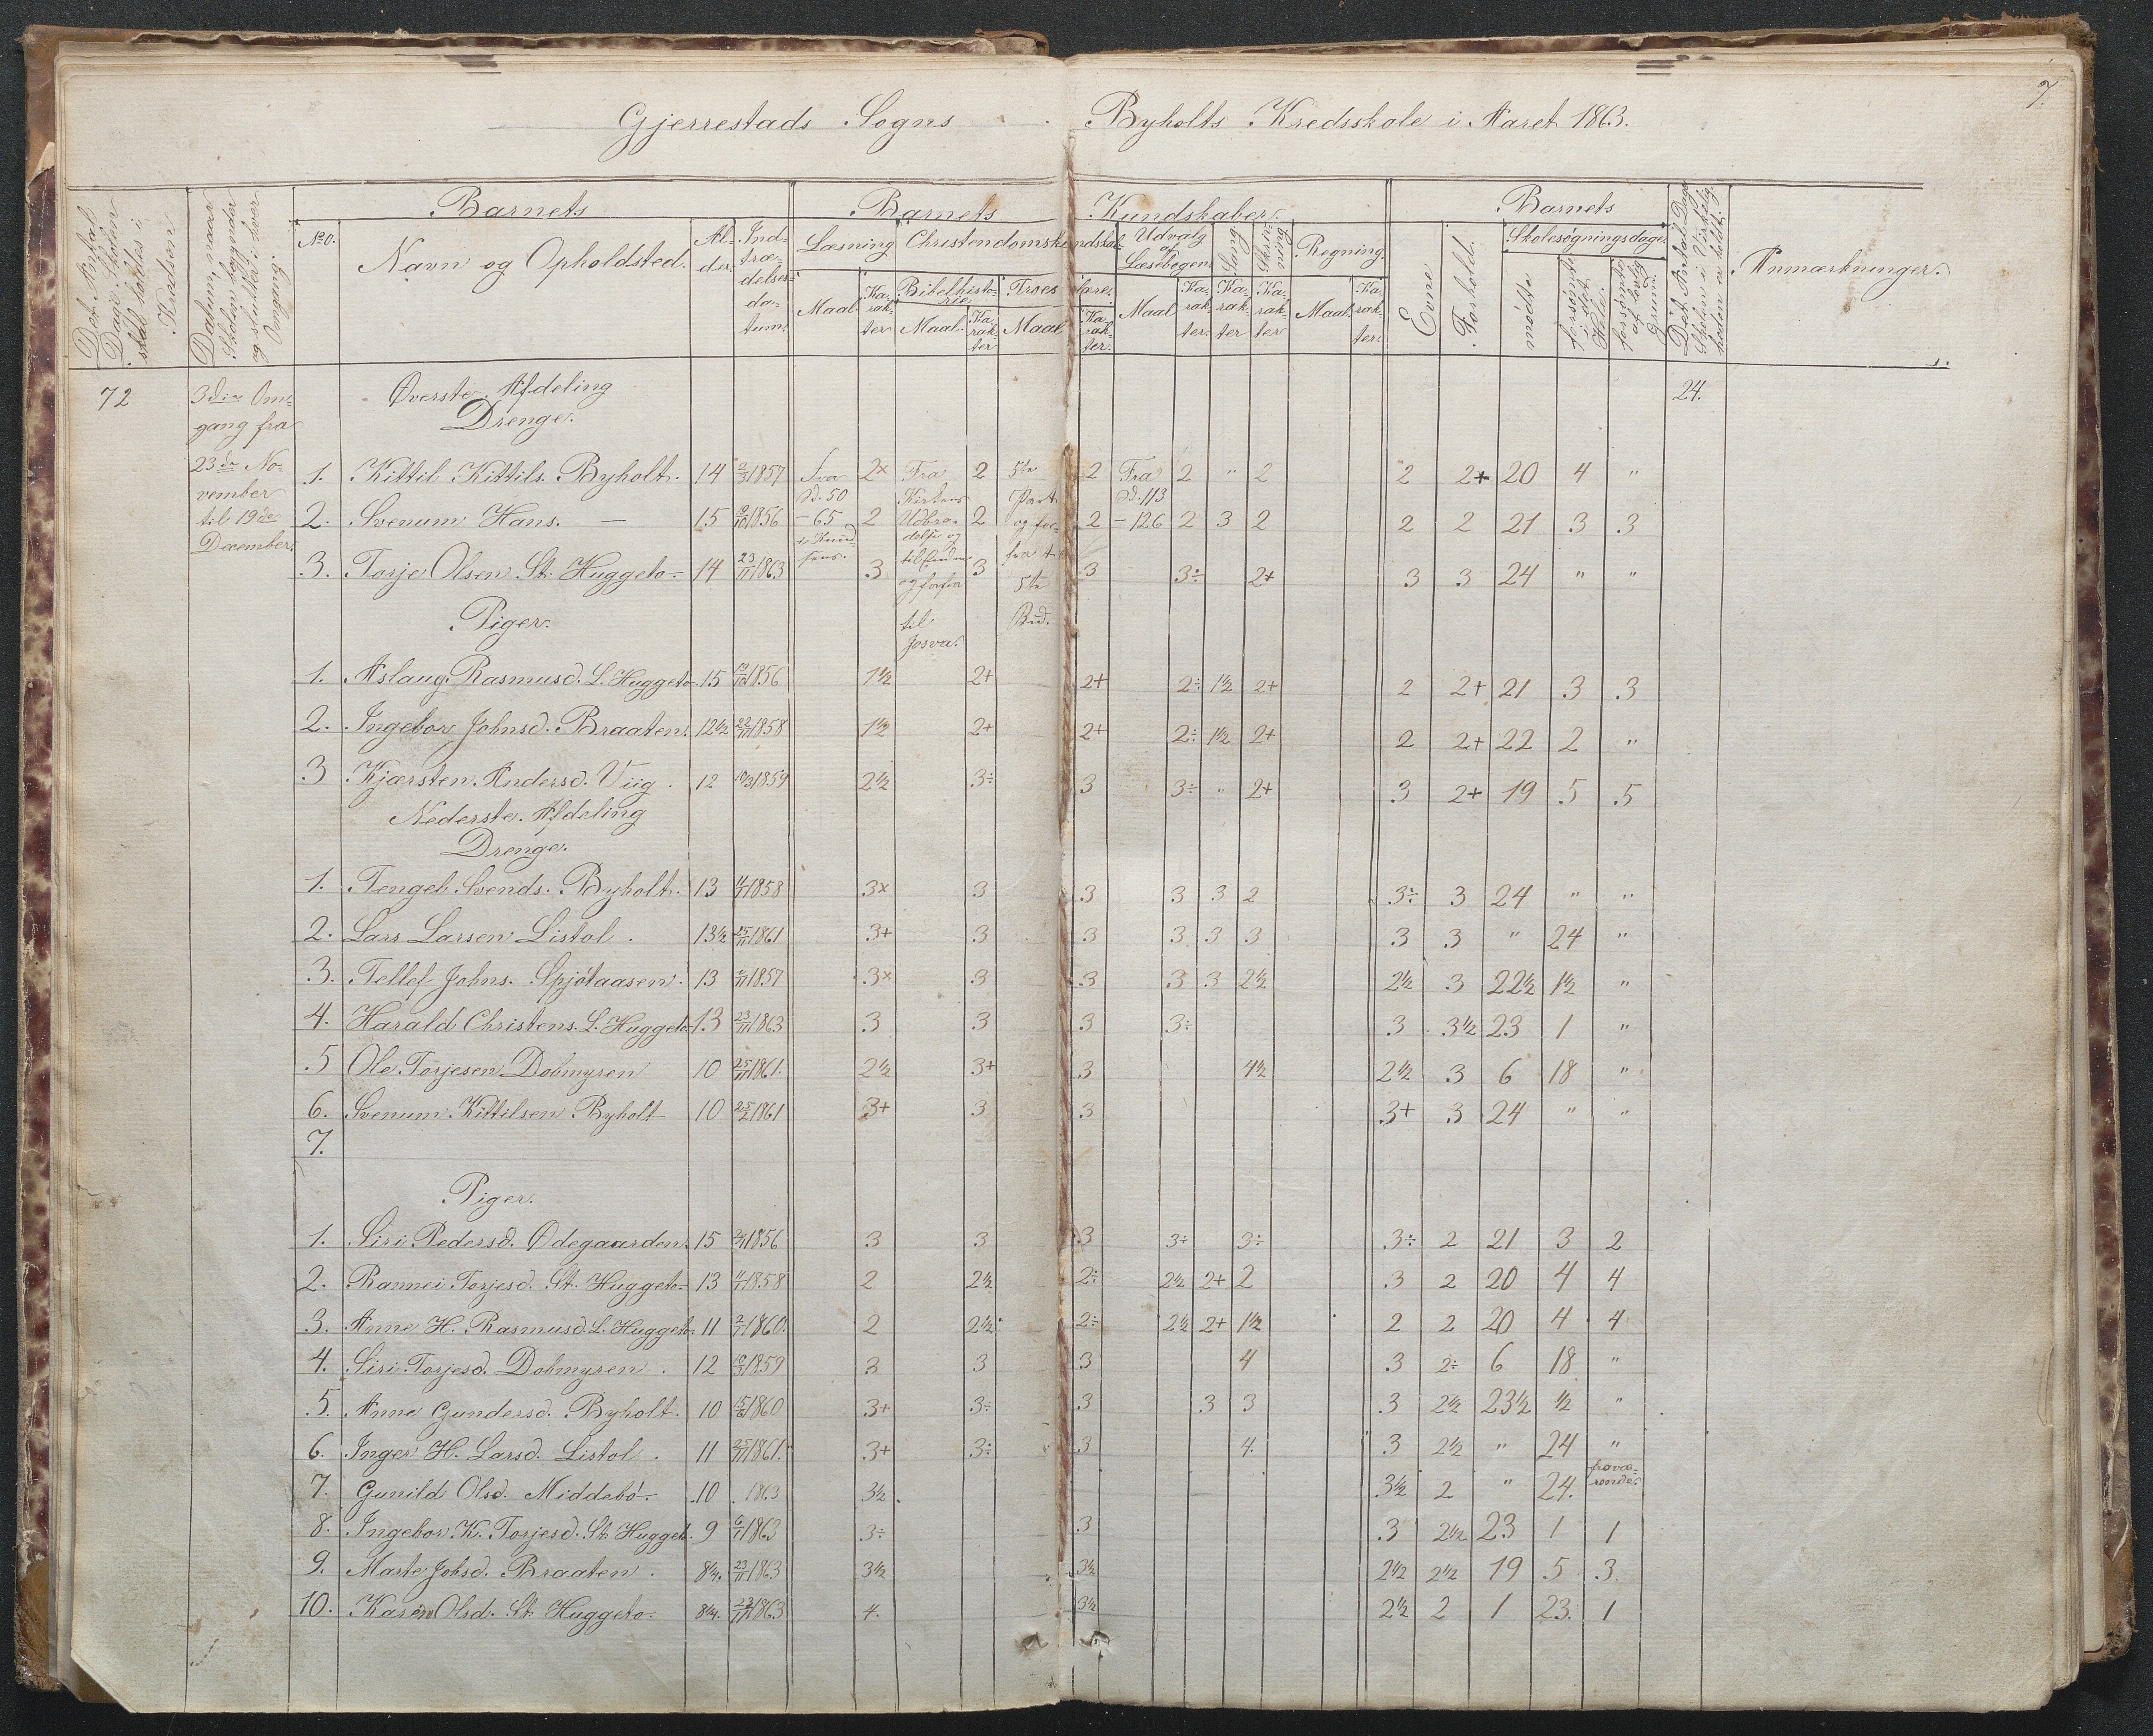 7.
Gjerrestads Sogns Byholts Kredsskole i Aaret 1863.
Det Antal Dage, Skolen skal holdes i Kredsen
Datum, naar Skolen begynder og slutter i hver Omgang.
Barnets
No.
Navn og Opholdsted.
Alder.
Indtrædelsesdatum.
Barnets Kundskaber.
Læsning
Christendomskundskab
Udvalg af Læsebogen.
Sang
Skrivning
Regning.
Maal.
Karakter
Bibelhistorie
Maal.
Karakter
Troeslære.
Maal
Karakter.
Maal
Karakter.
Karakter
Karakter
Maal.
Karakter.
Barnets
Evne
Forhold.
Skolesøgningsdage.
mødte
forsømte i det Hele.
forsømte af lovlig Grund.
Det Antal Dage Skolen i Virkeligheden er holdt.
Anmærkninger.
72 3die Omgang fra 23de November til 19de December.
Øverste Afdeling 24.
Drenge.
1. Kittil Kittils. Byholt. 14 1857 Fra Sd. 50 2x Fra 2 5te Part 2 Fra Sd. 113 2 " 2 2 2+ 20 4 "
2. Svenum Hans. — 15 1856 – 65 2 2 2 – 126 2 3 2 2 2 21 3 3
3. Torje Olsen St. Huggeto. 14 23/11 1863 3 3 3 3÷ 2+ 3 3 24 " "
og forfra til Josva. 5te Bud.
Piger.
1. Aslaug Rasmusd. L. Huggeto. 15 1856 1½ 2+ 2+ 2÷ 1½ 2+ 2 2+ 21 3 3
2. Ingebor Johnsd. Braaten. 12½ 22/11 1858 1½ 2+ 2+ 2÷ 1½ 2+ 2 2+ 22 2 "
3 Kjærsten Andersd. Viig. 12 10/3 1859 2½ 3÷ 3 3÷ " 2+ 3 2+ 19 5 5
Nederste Afdeling
Drenge.
1. Tengel Svends. Byholt. 13 1858 3x 3 3 3 3 2 3÷ 3 24 " "
2. Lars Larsen Listol. 13½ 25/11 1861 3+ 3 3 3 3 3 3 3 " 24 "
3. Tellef Johns. Spjøtaasen. 13 1857 3x 3 3 3 3 2½ 2½ 3 22½ 1½ "
4. Harald Christens. L. Huggeto 13 23/11 1863 3 3 3 3÷ 3 3½ 23 1 "
5 Ole Torjesen Dobmyren 10 25/11 1861. 2½ 3+ 3 4½ 2½ 3 6 18 "
6. Svenum Kittilsen Byholt 10 25/2 1861 3+ 3 3 3+ 3 24 " "
7.
Piger.
1. Siri Pedersd. Ødegaarden. 15 1856 3 3 3 3÷ 3÷ 3÷ 2 21 3 2
2. Rannei Torjesd. St. Huggeto. 13 1858 2 2½ 2÷ 2½ 2+ 2 3 2 20 4 4
3. Anne H. Rasmusd. L. Huggeto. 11 1860. 2 2½ 2÷ 2½ 2+ 1½ 2 2 20 4 4
4. Siri Torjesd. Dobmyren. 12 10/3 1859 3 3 3 4 3 2÷ 6 18 "
5. Anne Gundersd. Byholt. 10 1860 3+ 3÷ 3 3 3 3 2½ 23½ ½ "
6. Inger H. Larsd. Listol. 11 25/11 1861. 3+ 3÷ 3 4. 3 2½ " 24 "
7. Gunild Olsd. Middebø. 10 1863 3½ 3½ 2 " 24. fraværende.
8. Ingebor K. Torjesd. St. Huggeto. 9 1863 3÷ 3 3 2½ 23 1 1
9. Marte Johsd. Braaten. 8¼. 23/11 1863 3½ 3½ 2½ 2½ 19 5 3.
10. Karen Olsd. St. Huggeto. 8¼. 23/11 1863 4. 3½ 2½ 2 1 23. 1